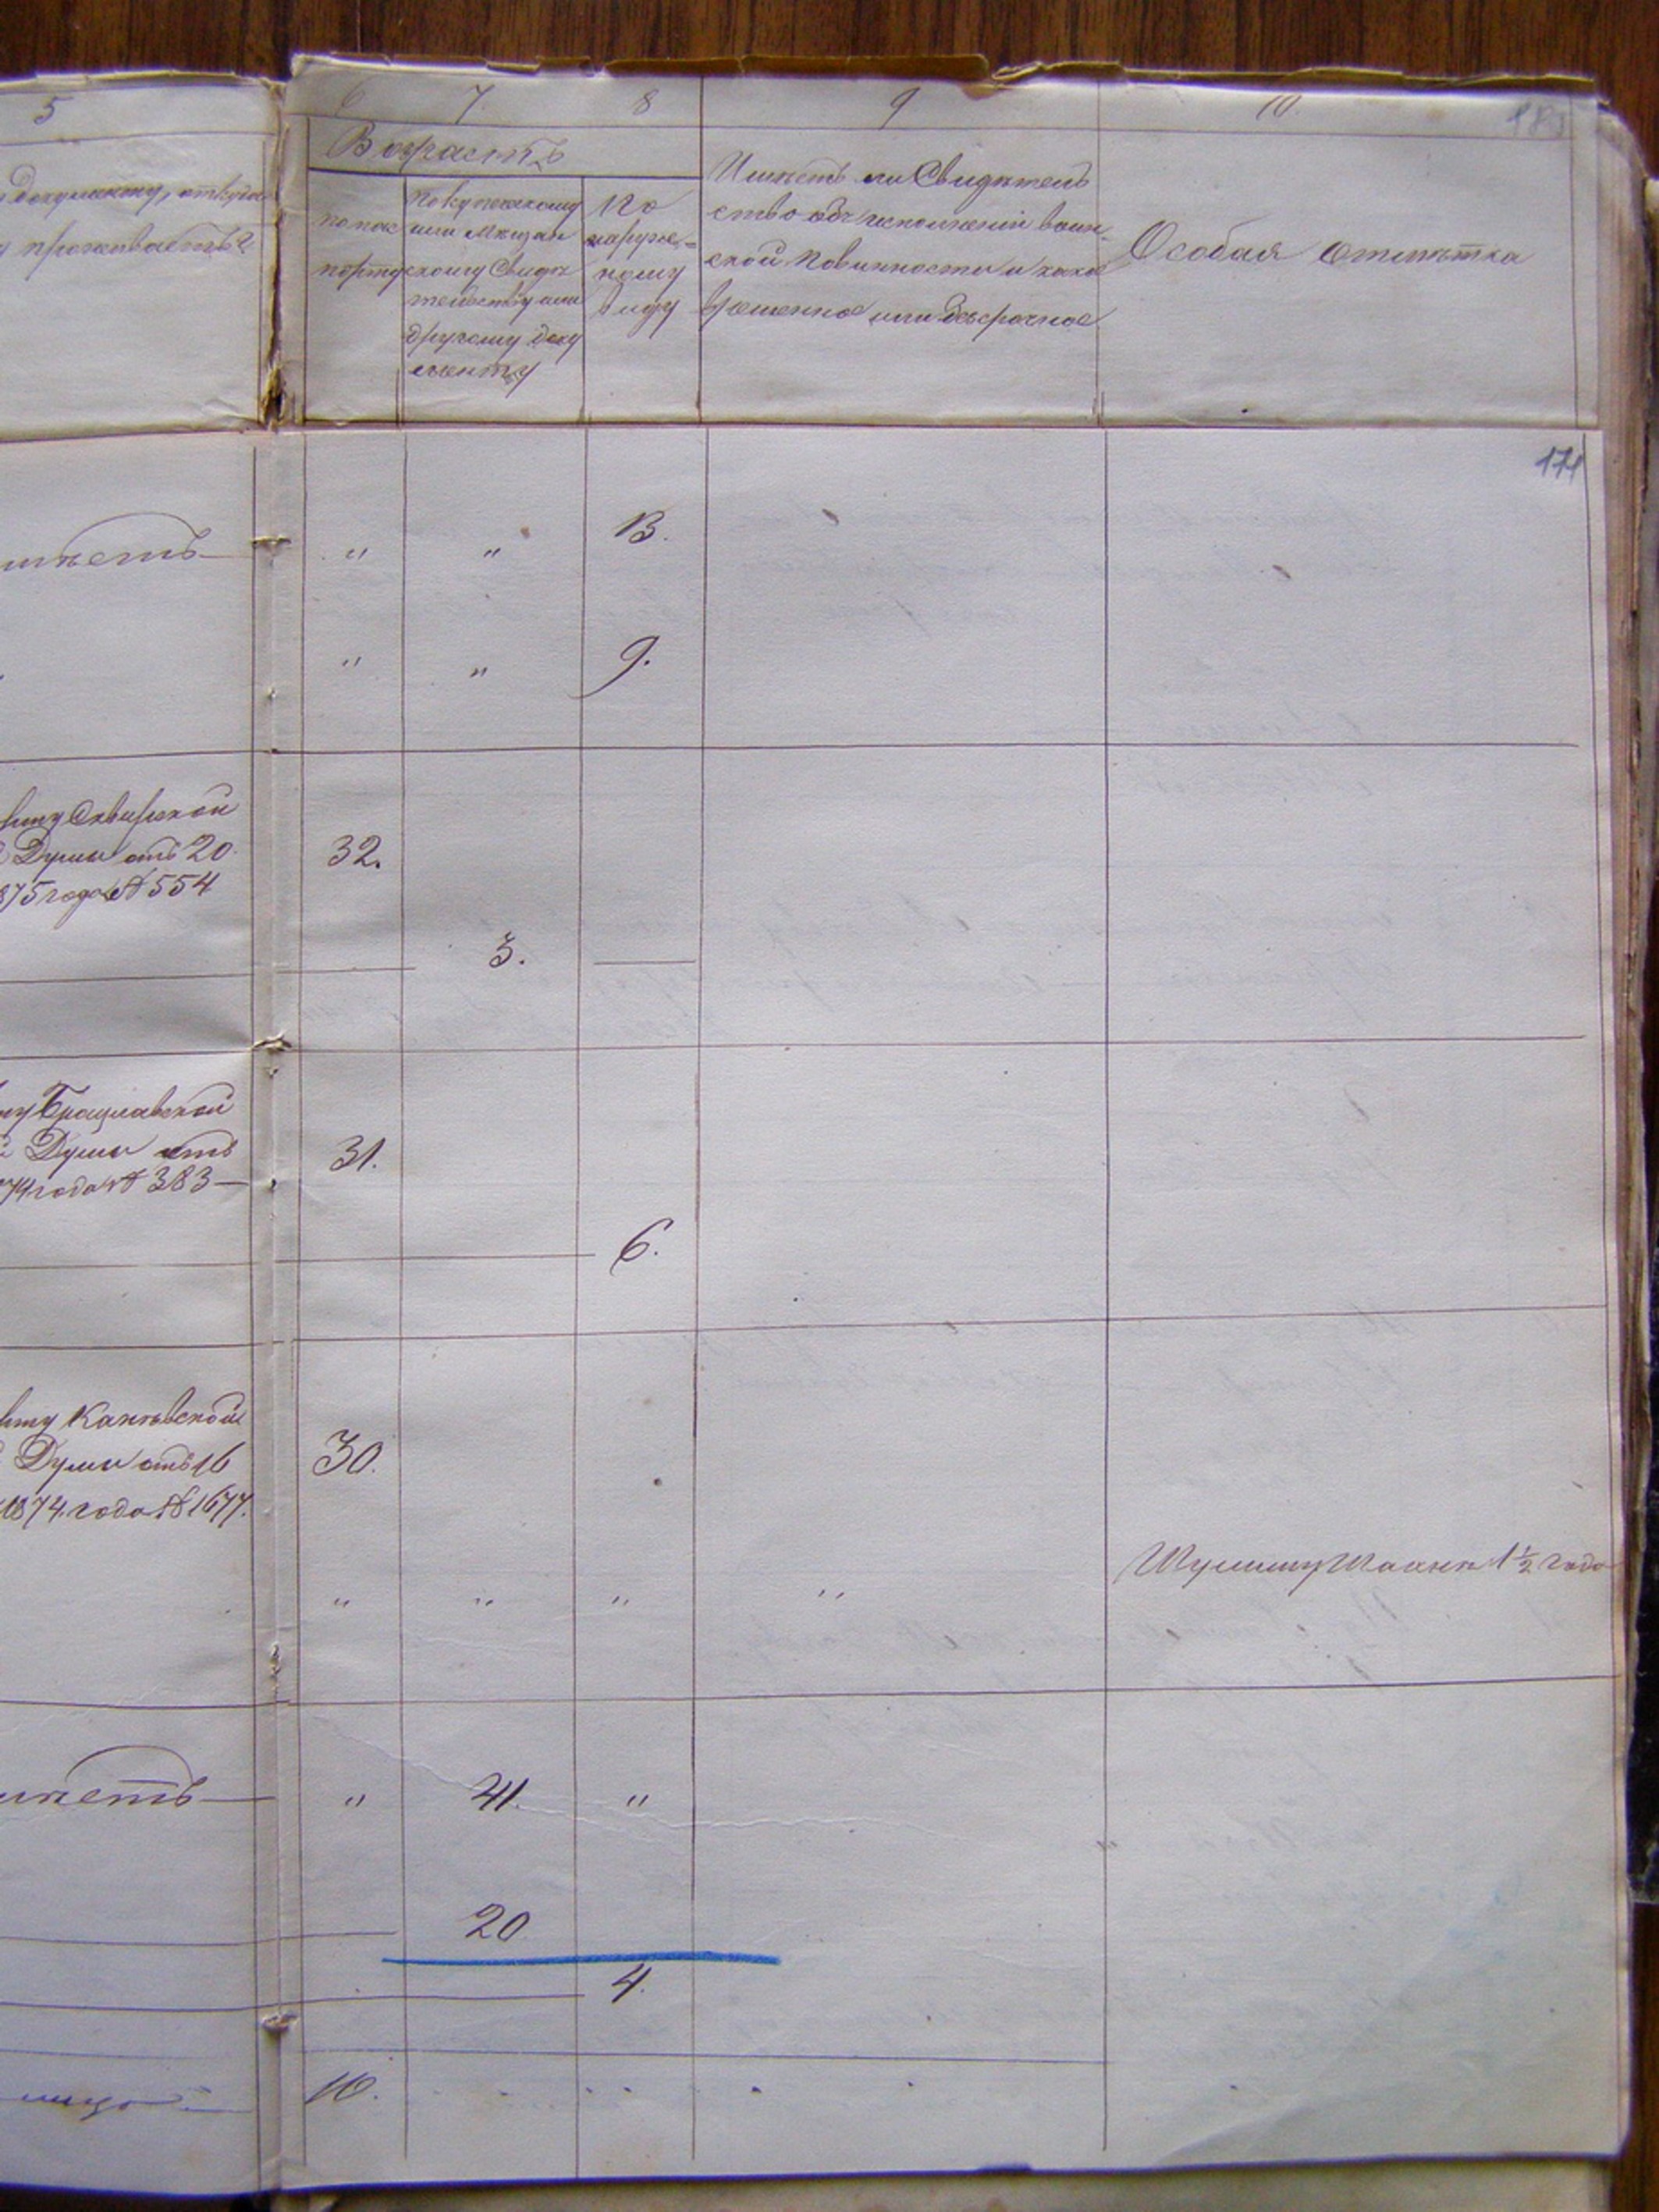 5 6 7. 8 9 10.
Возрастъ
документу, откуда
проживаетъ?
по пас
порту
по купеческому
или мѣщан
скому Свидѣ
тельству или
другому доку
менту
По
наруж-
ному
виду
Имѣетъ ли Свидѣтель
ство объ исполненіи воин-
ской повинности и какое
временное или безсрочное
Особая отмѣтка
171
имѣетъ — " " 13.
" " 9.
рту Сквирской
Думы отъ 20.
875 года № 554
32.
3.
ту Брацлавской
Думы отъ
74 года № 383 —
31.
6.
рту Каневской
Думы отъ 16
1874. года № 1677.
30.
" " " "
1½ года
имѣетъ — " 41. "
20
4.
10.